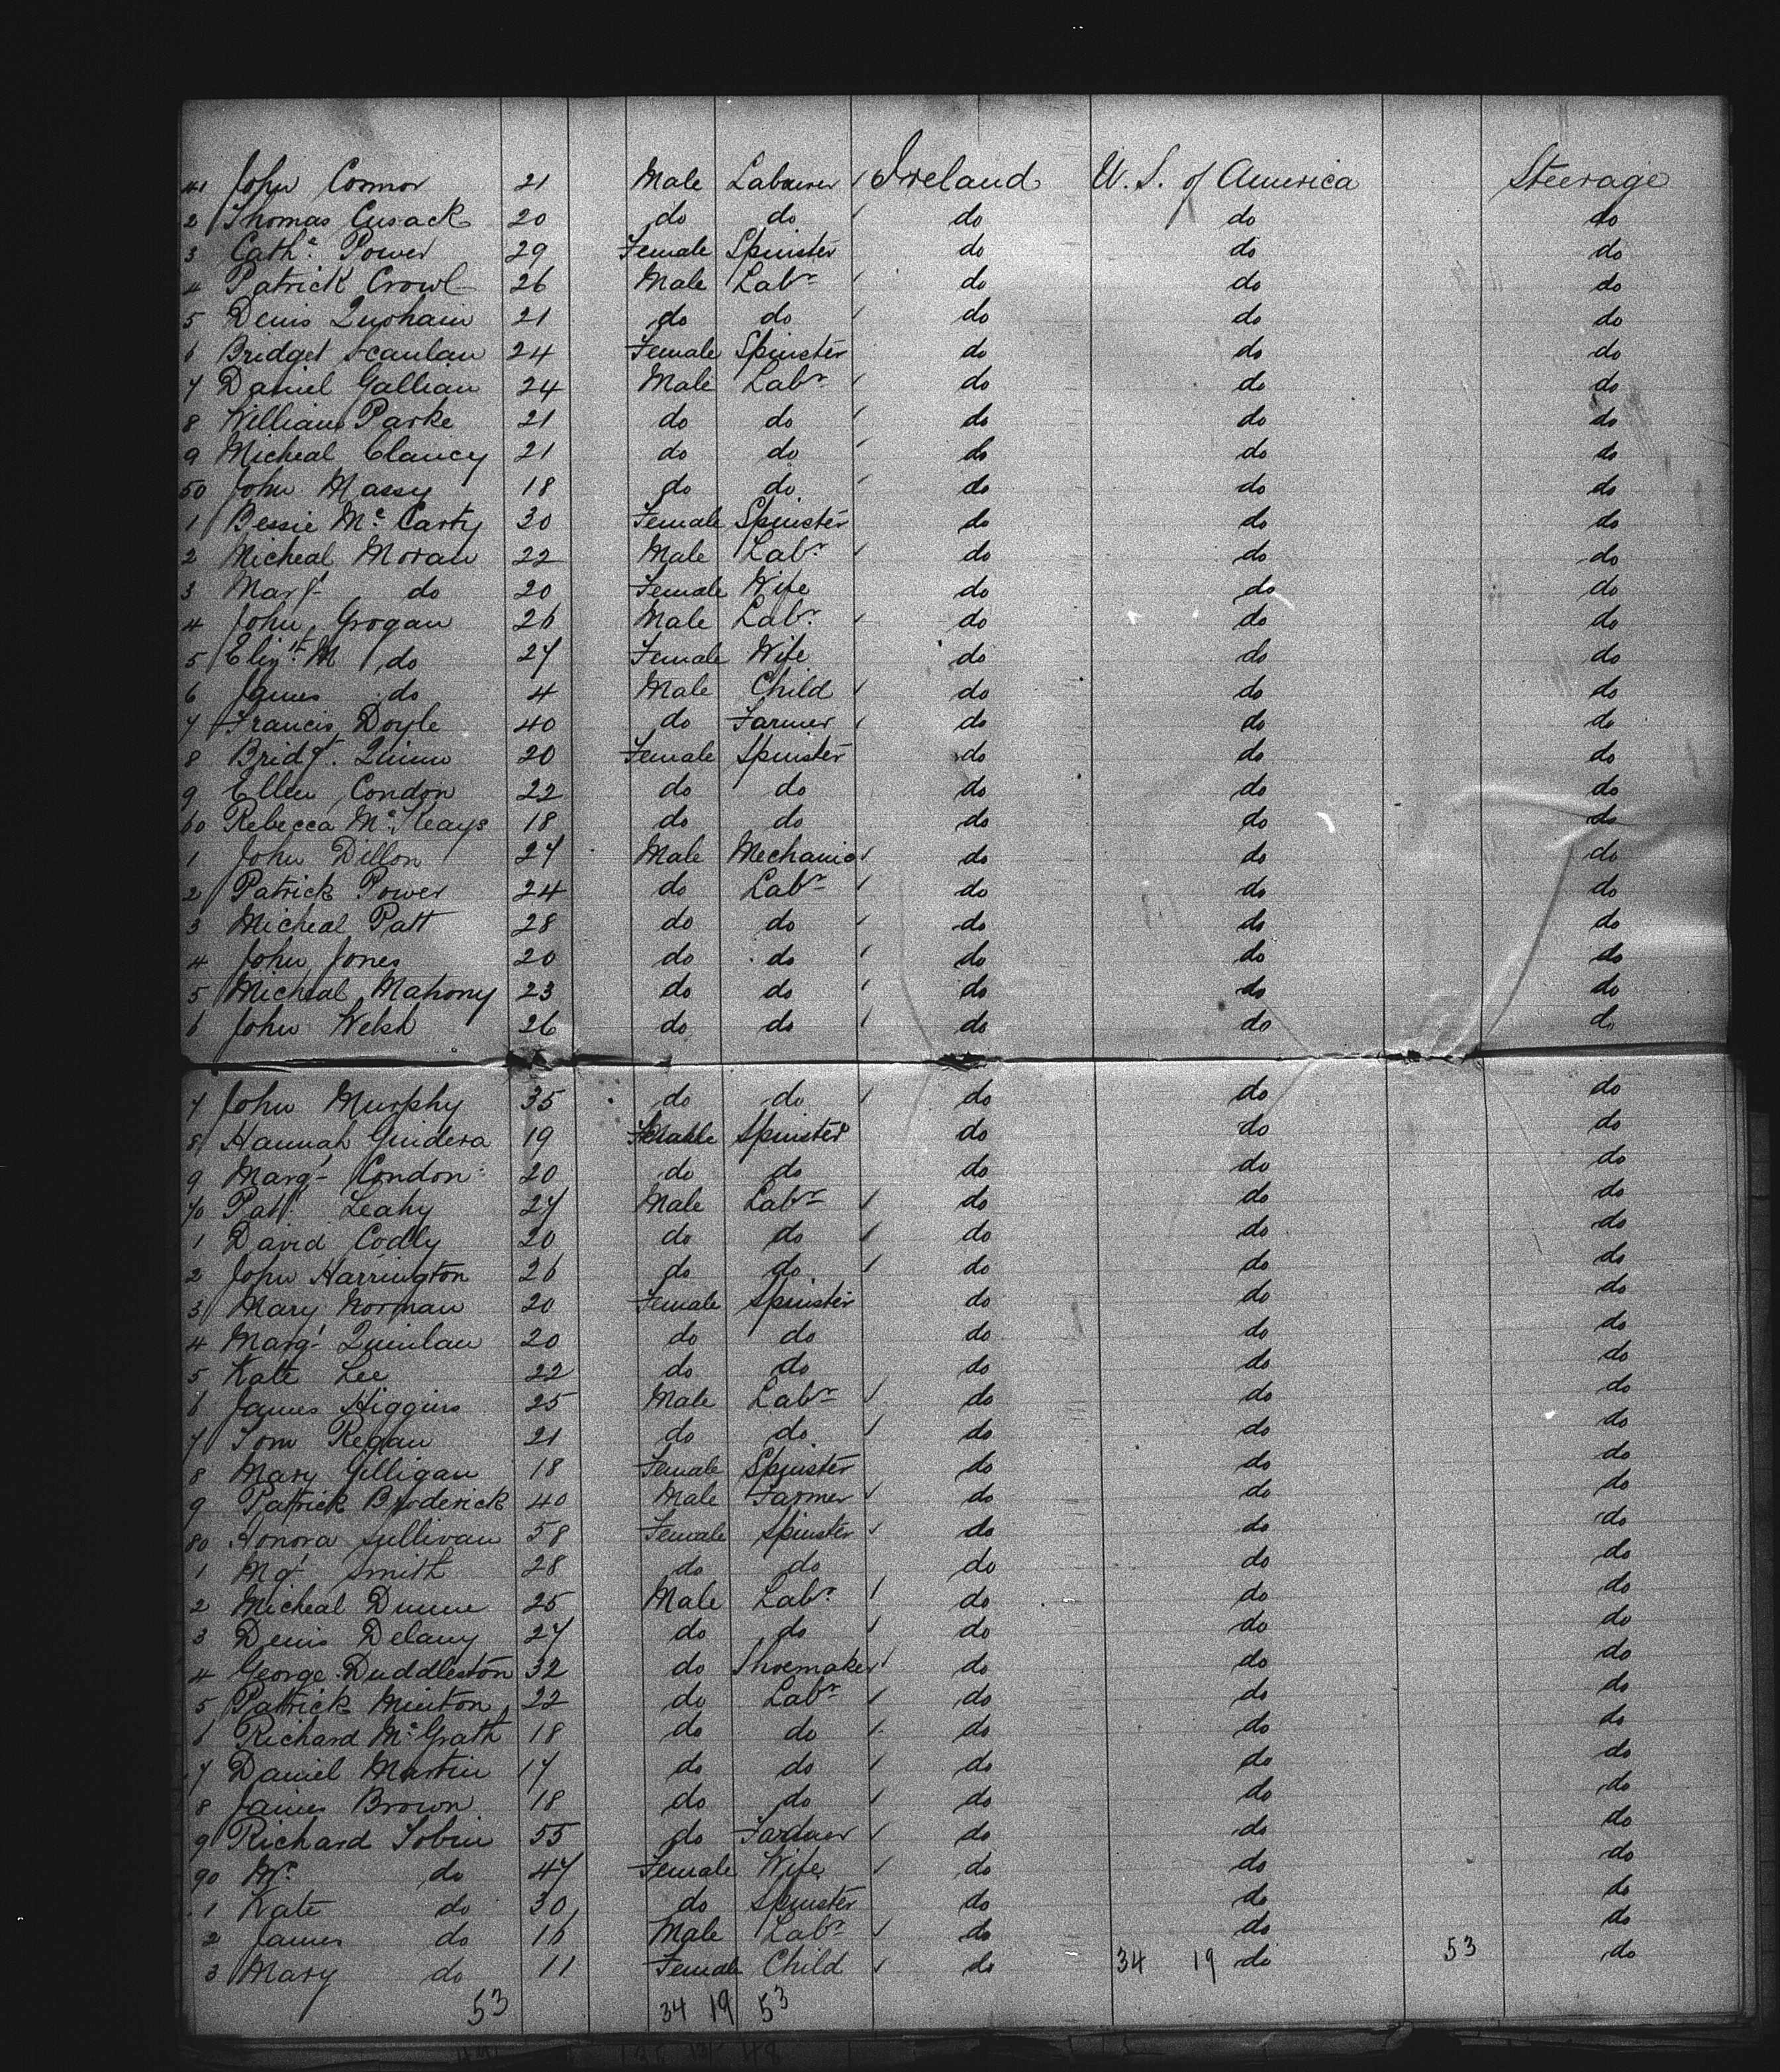 41 John Connor 21 Male Labourer Ireland U. S. of America Steerage
2 Thomas Cusack 20 do do do do do
3 Cathe Power 29 Female Spinster do do do
4 Patrick Crowl 26 Male Labr do do do
5 Denis 21 do do do do do
6 Bridget Scanlan 24 Female Spinster do do do
7 Daniel Gallian 24 Male Labr do do do
8 William Parke 21 do do do do do
9 Micheal Clancy 21 do do do do do
50 John Massy 18 do do do do do
1 Bessie Mc Carty 30 Female Spinster do do do
2 Micheal Moran 22 Male Labr do do do
3 Margt do 20 Female Wife do do do
4 John Grogan 26 Male Labr do do do
5 Elizth M do 27 Female Wife do do do
6 James do 4 Male Child do do do
7 Francis Doyle 40 do Farmer do do do
8 Bridgt Quinn 20 Female Spinster do do do
9 Ellen Condon 22 do do do do do
60 Rebecca Mc Keays 18 do do do do do
1 John Dillon 27 Male Mechanic do do do
2 Patrick Power 24 do Labr do do do
3 Micheal Patt 28 do do do do do
4 John Jones 20 do do do do do
5 Micheal Mahony 23 do do do do do
6 John Welsh 26 do do do do do
7 John Murphy 35 do do do do do
8 Hannah Guidera 19 Female Spinster do do do
9 Margt Condon 20 do do do do do
70 Patk Leahy 27 Male Labr do do do
1 David Codly 20 do do do do do
2 John Harrington 26 do do do do do
3 Mary Norman 20 Female Spinster do do do
4 Margt Quinlan 20 do do do do do
5 Kate Lee 22 do do do do do
6 James Higgins 25 Male Labr do do do
7 Tom Regan 21 do do do do do
8 Mary Gilligan 18 Female Spinster do do do
9 Patrick Broderick 40 Male Farmer do do do
80 Honora Sullivan 58 Female Spinster do do do
1 Mgt Smith 28 do do do do do
2 Micheal Dunne 25 Male Labr do do do
3 Denis Delany 27 do do do do do
4 George Duddleston 32 do Shoemaker do do do
5 Patrick Minton 22 do Labr do do do
6 Richard Mc Grath 18 do do do do do
7 Daniel Martin 17 do do do do do
8 James Brown 18 do do do do do
9 Richard Tobin 55 do Farmer do do do
90 Mrs do 47 Female Wife do do do
1 Kate do 30 do Spinster do do do
2 James do 16 Male Labr do do do
3 Mary do 11 Female Child do 34 19 do 53 do
53 34 19 53